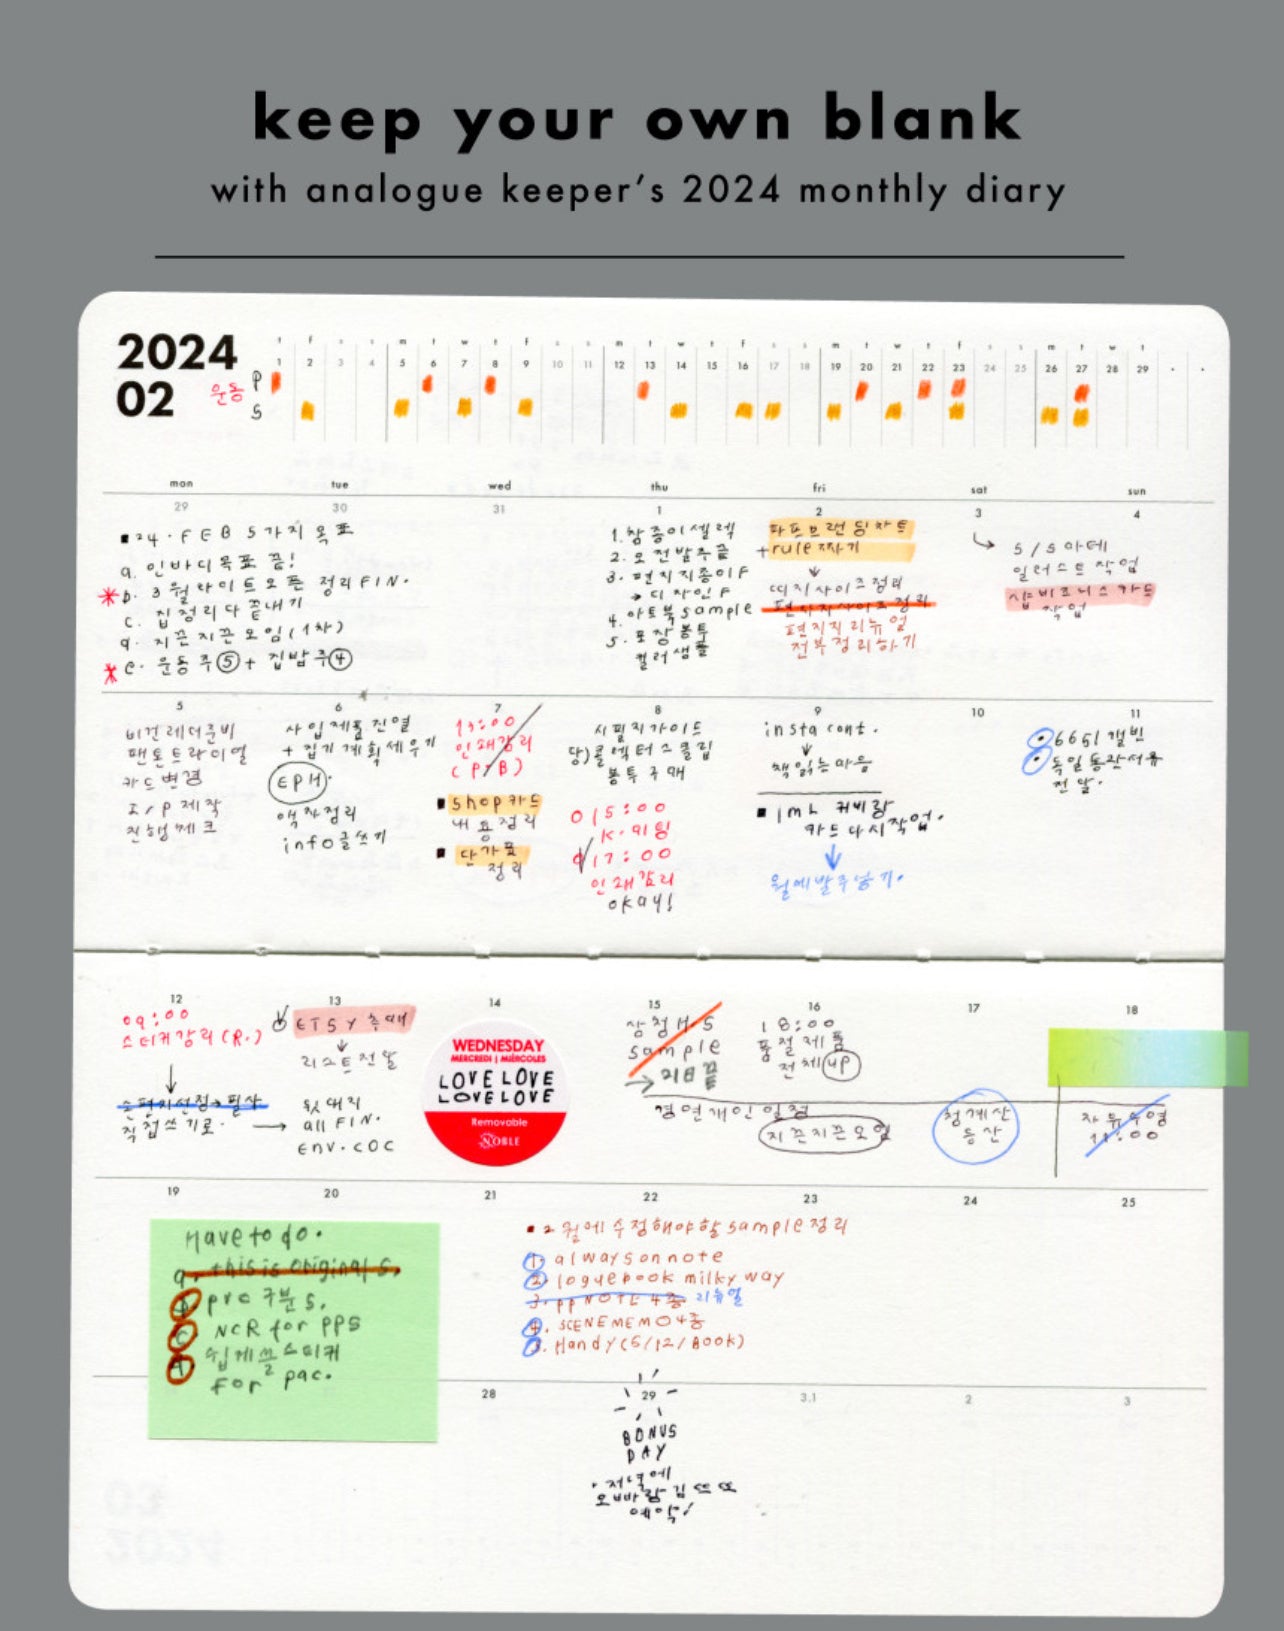 keep your own blank
with analogue keeper's 2024 monthly diary
2024
02
운동
P
S
t f s s m t w t f s s m t w t f s s m t w t f s s m t w t
1 2 3 4 5 6 7 8 9 10 11 12 13 14 15 16 17 18 19 20 21 22 23 24 25 26 27 28 29
mon tue wed thu fri sat sun
29 30 31 1 2 3 4
24. FEB 5가지 목표
a. 인바디 목표 끝!
b. 3월 라이트 오픈 정리 FIN.
c. 집정리 다 끝내기
d. 지끈지끈 모임 (1차)
e. 운동 주⑤ + 집밥 주④
1. 참종이 셀렉
2. 오전 발주 끝
3. 편지지 종이 F
→ 디자인 F
4. 아트북 sample
5. 포장봉투
컬러 샘플
파프 브랜딩 차트
+rule 짜기
띠지 사이즈 정리
편지지 사이즈 정리
편지지 리뉴얼
전부 정리하기
S/S 아테
일러스트 작업
샵 비즈니스 카드
작업
5 6 7 8 9 10 11
비건 레더 준비
팬톤 트라이얼
카드 변경
I/P 제작
진행 체크
사입 제품 진열
+ 집기 계획 세우기
EPH.
액자 정리
info 글쓰기
13:00
인쇄감리
(P.B)
shop 카드
내용 정리
단가표
정리
시필지 가이드
당) 콜렉터 스클립
봉투 구매
15:00
K.미팅
17:00
인쇄감리
okay!
insta cont.
책 읽는 마음
1mL 커비랑
카드 다시 작업.
월에 발주 넣기.
6651 캘빈
독일 통관 서류
전달.
12 13 14 15 16 17 18
09:00
스티커 감리 (R.)
손편지 선정 → 필사
직접 쓰기로.
ETSY 측에
리스트 전달
뒷대지
all FIN.
env. COC
WEDNESDAY
MERCREDI | MIÉRCOLES
LOVE LOVE
LOVE LOVE
Removable
NOBLE
삼청 H.S
sample
→ 21일 끝
18:00
품절 제품
전체 up
경연 개인 일정
지끈지끈 모임
청계산
등산
자유수영
11:00
19 20 21 22 23 24 25
Have to do.
a. this is original s.
b. pre 구분 s.
c. NCR for pps
d. 쉽게 쓰는 스티커
for pac.
2월에 수정해야할 sample 정리
1. always on note
2. loguebook milky way
3. pp NOTE 4종 리뉴얼
4. SCENE MEMO 4종
5. Handy (5/12/BOOK)
28 29 3.1 2 3
BONUS
DAY
저녁에
오빠랑 김뜨또
예약!